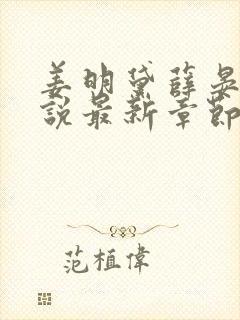 姜明黛薛晏
說最新章節
范植偉